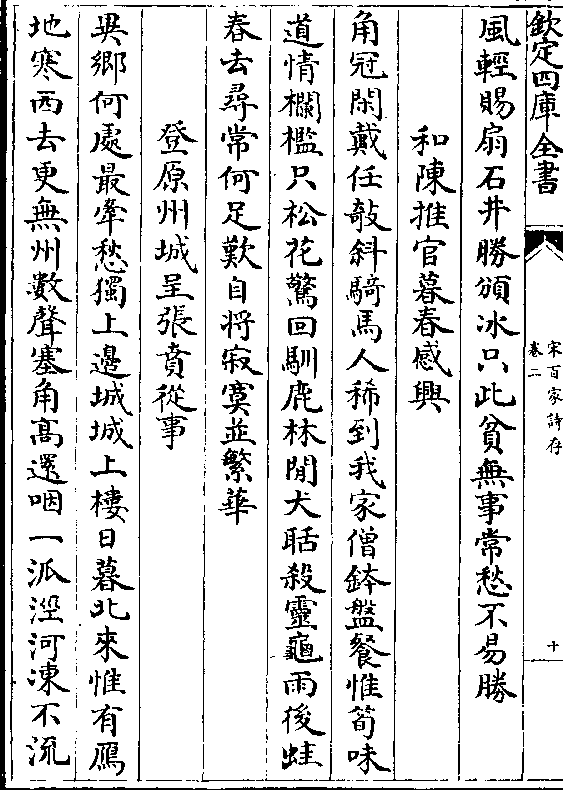 欽定四庫全書
宋百家詩存
卷二
十
風輕賜扇石井勝頒冰只此貧無事常愁不易勝
和陳推官暮春感興
角冠閑戴任敧斜騎馬人稀到我家僧鉢盤餐惟筍味
道情欄檻只松花驚回馴鹿林間犬聒殺靈龜雨後蛙
春去尋常何足歎自将寂寞並繁華
登原州城呈張賁從事
異鄉何處最牽愁獨上邊城城上樓日暮北來惟有鴈
地寒西去更無州數聲塞角高還咽一派涇河凍不流